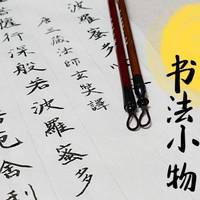 书法小物
波羅蜜多
唐三藏法師玄奘譯
薩行深般若波羅蜜多
厄舍利